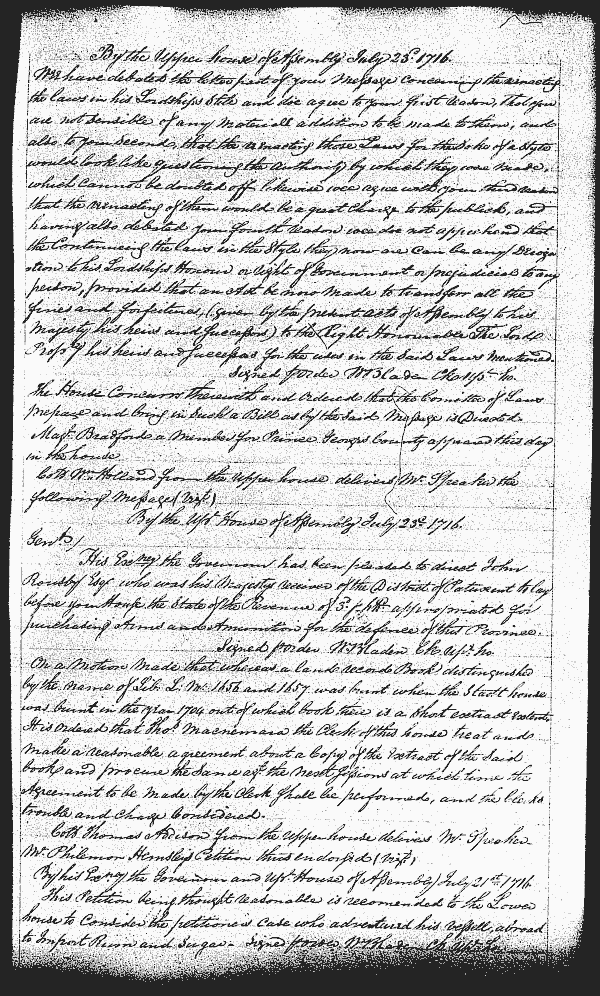 By the Upper house of Assembly July 23d. 1716.
Wee have debated the latter part of your Message Concerning the reinacting
the laws in his Lordships Stile and doe agree to your first reason, That you
are not sensible of any Materiall addition to be made to them, and
also to your Second, that the reinacting those Laws for the Sake of a Style
would look like questioning the authority by which they were made,
which cannot be doubted off likewise wee agree with your third reason
that the reinacting of them would be a great Charge to the publick, and
having also debated your fourth reason wee doe not apprehend that
the Continueing the laws in the Style they now are can be any Deroga
ation to his Lordships Honour or right of Government or prejudicial to any
person, provided that an Act be now made to transferr all the
fines and forfeitures, (given by the present acts of Assembly to his
Majesty his heirs and Successors) to the Right Honourable The Lord
Propry his heirs and Successors for the uses in the Said Laws mentioned.
Signed p order Wm Bladen Cl. Upr. ho.
The House Concurrs therewith and Ordered that the Comittee of Laws
prepare and bring in Such a Bill as by the Said Message is Directed.
Majr. Bradford a Member for Prince Georges County appeared this day
in the house
Collo Wm. Holland from the Upper house delivers Mr. Speaker the
following Message (vizt)
By the Upr. House of Assembly July 23d. 1716.
Gent)
His Exncy the Governour has been pleased to direct John
Rousby Esqr who was his Majestys receiver of the District of Patuxent to lay
before your House the State of the Revenue of 3d. p hhd. appropriated for
purchasing Arms and Amunition for the defence of this Province.
Signed p order Wm Bladen Cl. Upr. ho.
On a Motion made that whereas a land records Book distinguished
by the name of Lib. L. No. 1656 and 1657 was burnt when the Stadt house
was burnt in the year 1704 out of which book there is a Short extract extant
It is Ordered that Thos. Macnemara the Clerk of this house treat and
make a reasonable agreement about a Copy of the Extract of the Said
book and procure the Same agt. the next Sessions at which time the
Agreement to be made by the Clerk Shall be performed, and the Clerks
trouble and charge Considered.
Collo Thomas Addison from the Upper house delivers Mr. Speaker
Mr. Philemon Hemsleys Petition thus endorsed (vizt)
By his Exncy the Governour and Upr. House of Assembly July 21st. 1716
This Petition being thought reasonable is recomended to the Lower
house to Consider the petitioners case who adventured his vessell abroad
to Import Rum and Sugar. Signed p order Wm Bladen Cl. Upr. ho.